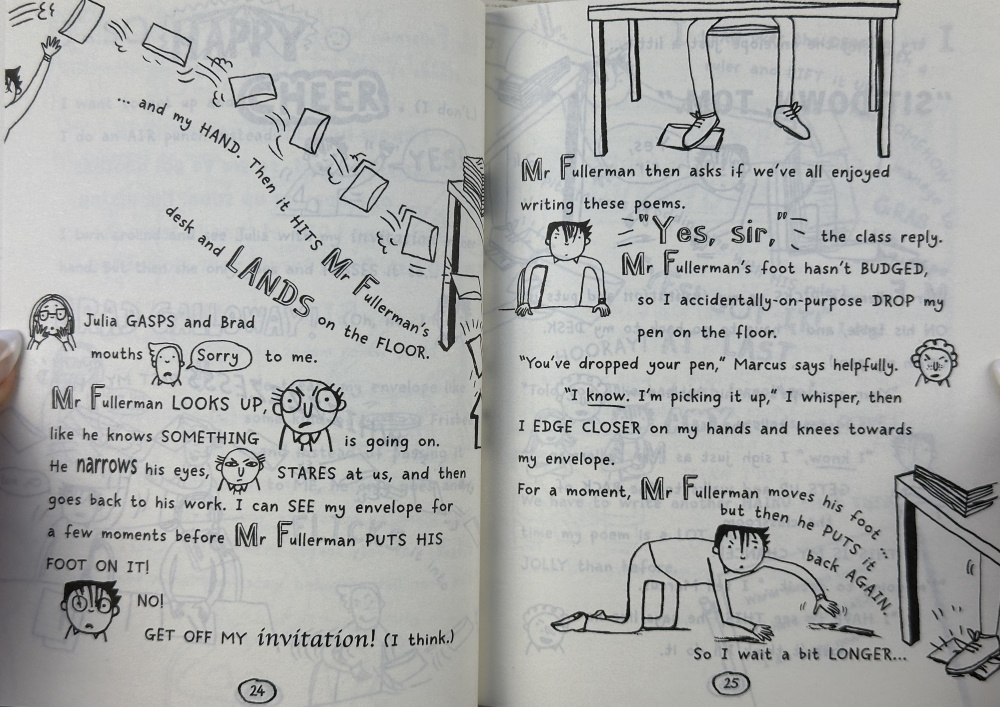 ... and my HAND. Then it HITS Mr Fullerman's
desk and LANDS on the FLOOR.
Julia GASPS and Brad
mouths Sorry to me.
Mr Fullerman LOOKS UP,
like he knows SOMETHING is going on.
He narrows his eyes, STARES at us, and then
goes back to his work. I can SEE my envelope for
a few moments before Mr Fullerman PUTS HIS
FOOT ON IT!
NO!
GET OFF MY invitation! (I think.)
24
Mr Fullerman then asks if we've all enjoyed
writing these poems.
"Yes, sir," the class reply.
Mr Fullerman's foot hasn't BUDGED,
so I accidentally-on-purpose DROP my
pen on the floor.
"You've dropped your pen," Marcus says helpfully.
"I know. I'm picking it up," I whisper, then
I EDGE CLOSER on my hands and knees towards
my envelope.
For a moment, Mr Fullerman moves his foot...
but then he PUTS it
back AGAIN.
So I wait a bit LONGER...
25